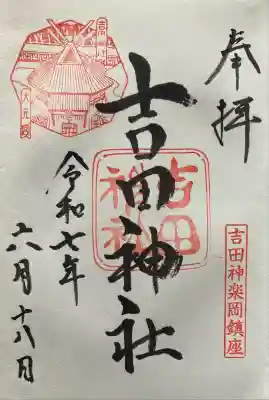 奉拝
吉田神楽岡鎮座
吉田神社
吉田神社
大元宮
令和七年
六月十八日